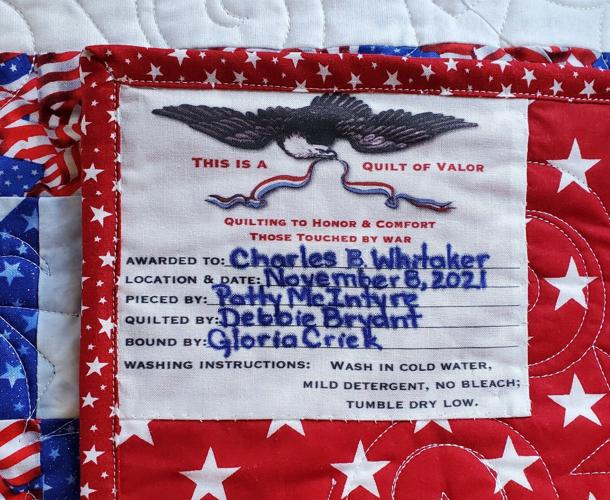 THIS IS A QUILT OF VALOR
QUILTING TO HONOR & COMFORT
THOSE TOUCHED BY WAR
AWARDED TO: Charles B. Whitaker
LOCATION & DATE: November 8, 2021
PIECED BY: Patty McIntyre
QUILTED BY: Debbie Bryant
BOUND BY: Gloria Criek
WASHING INSTRUCTIONS: WASH IN COLD WATER,
MILD DETERGENT, NO BLEACH;
TUMBLE DRY LOW.